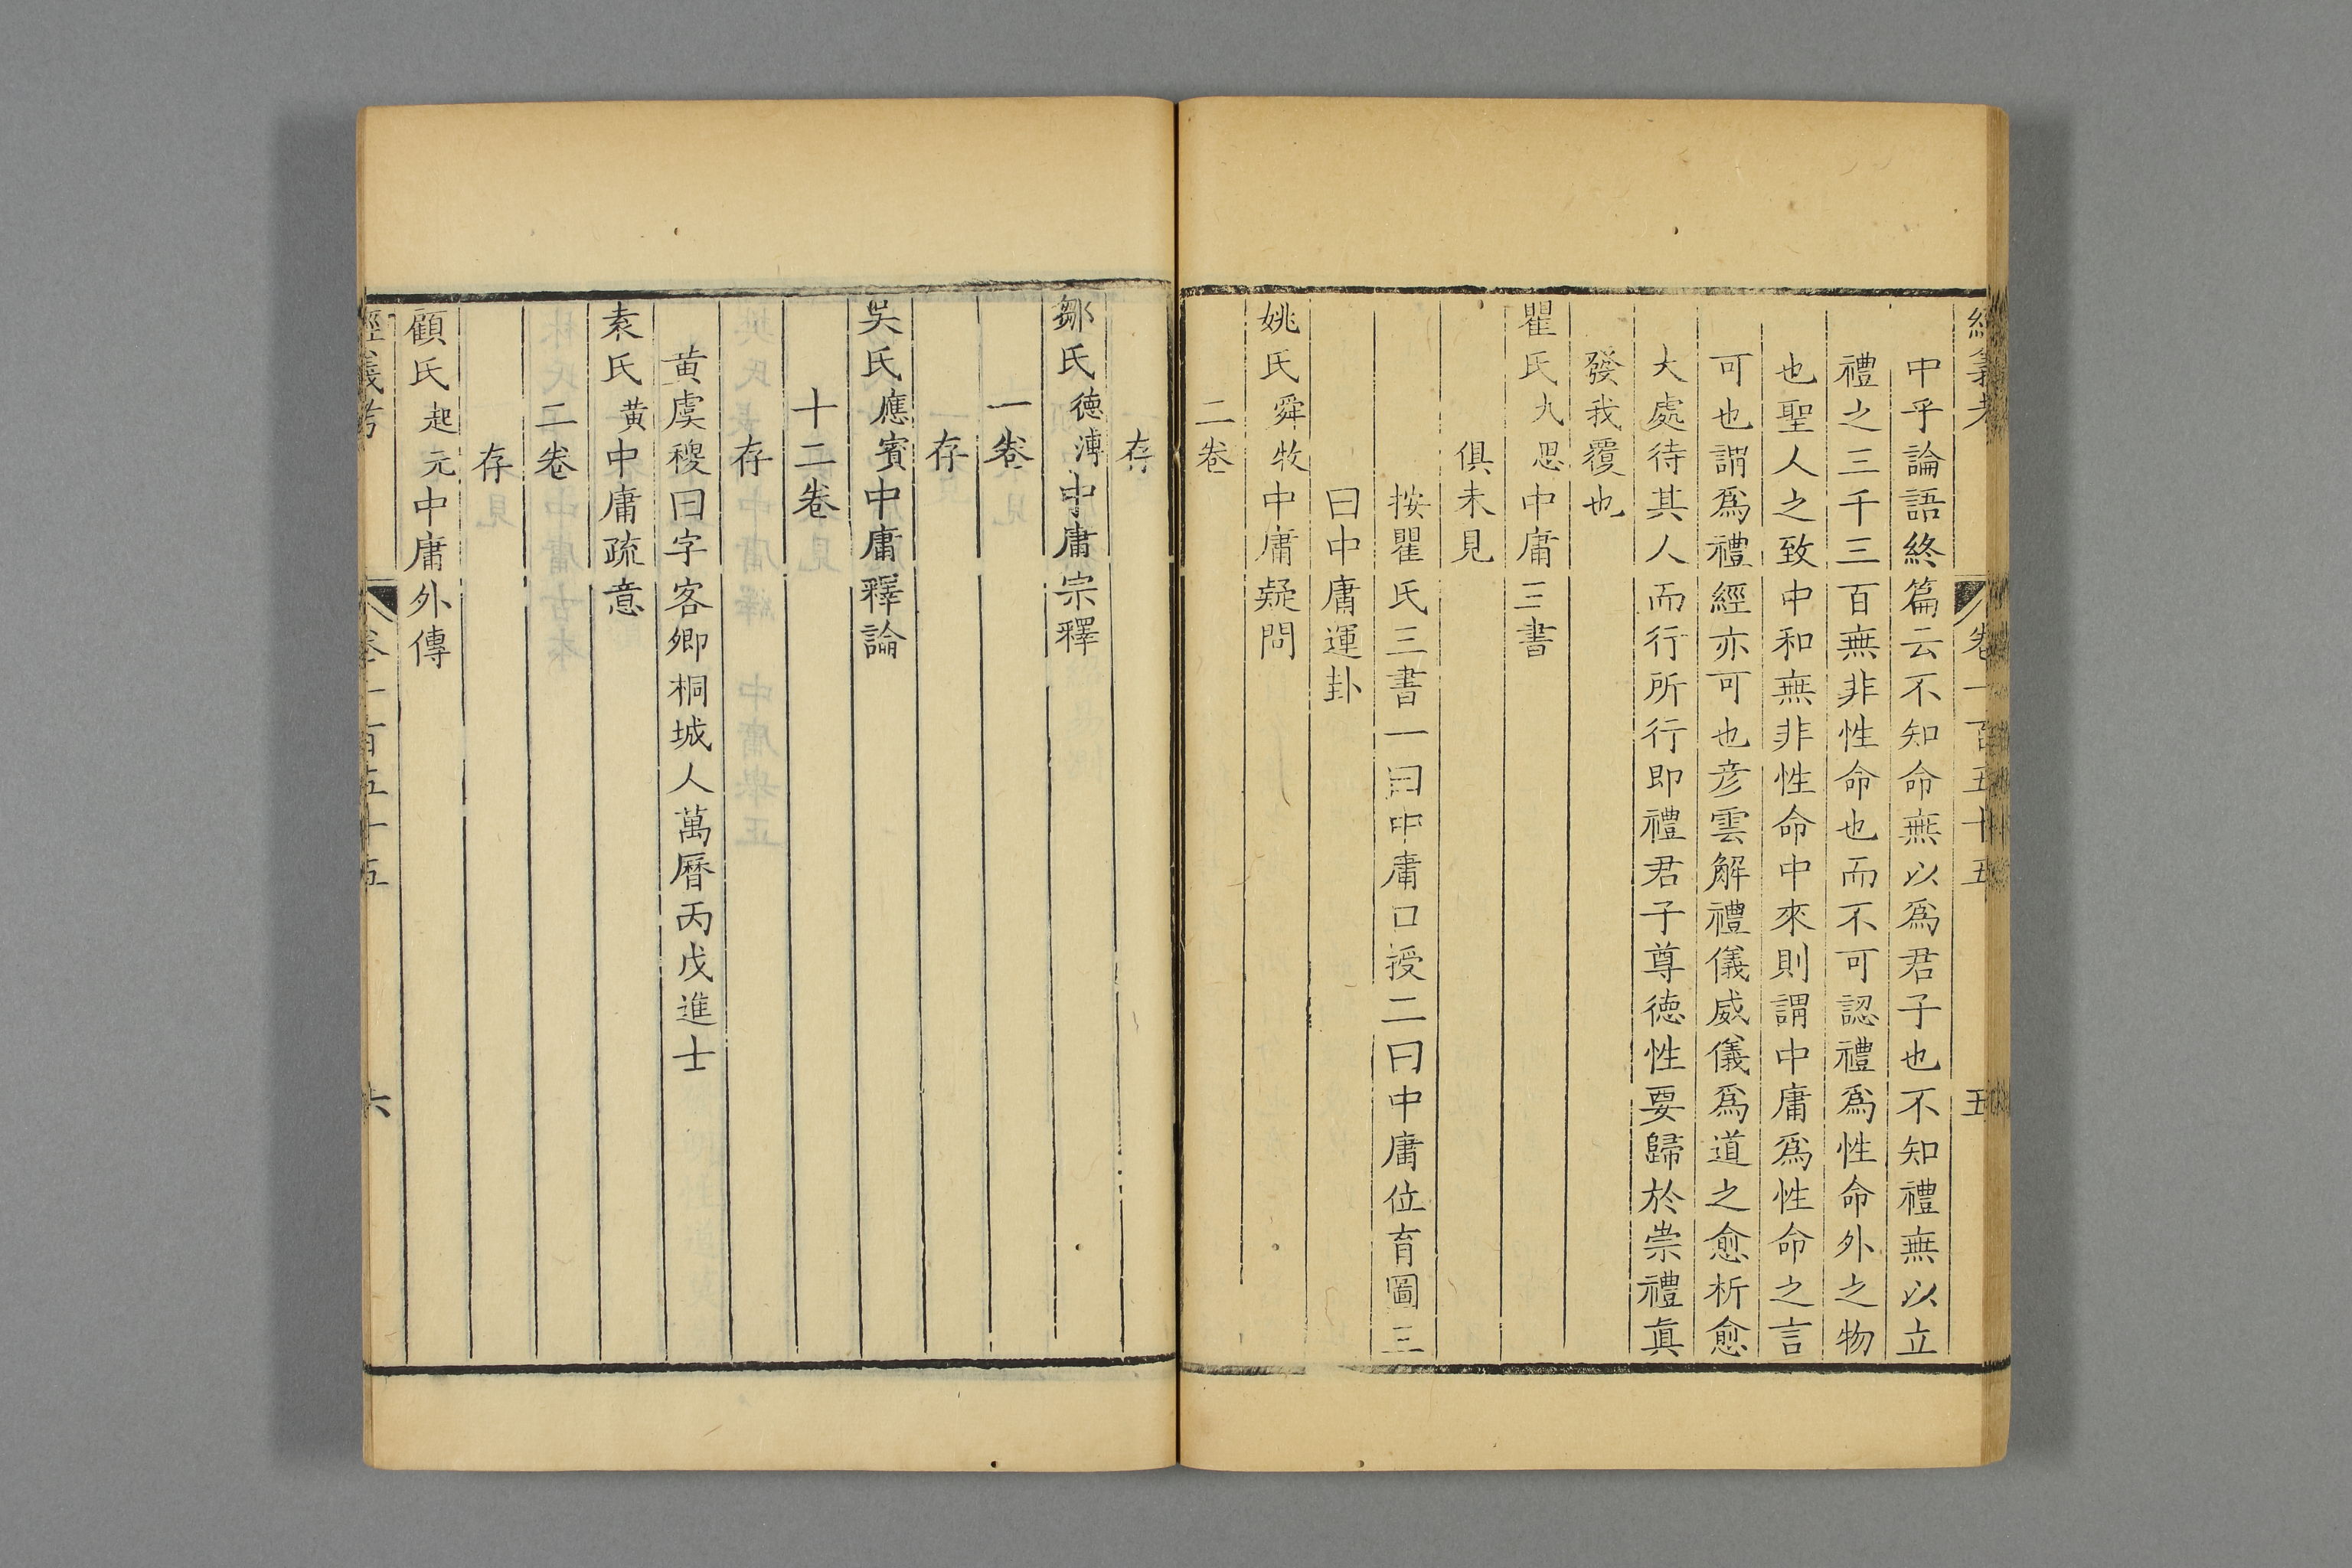 經義考　卷一百五十五　五
中乎論語終篇云不知命無以爲君子也不知禮無以立
禮之三千三百無非性命也而不可認禮爲性命外之物
也聖人之致中和無非性命中來則謂中庸爲性命之言
可也謂爲禮經亦可也彦雲解禮儀威儀爲道之愈析愈
大處待其人而行所行即禮君子尊徳性要歸於崇禮眞
發我覆也
瞿氏九思中庸三書
俱未見
按瞿氏三書一曰中庸口授二曰中庸位育圖三
曰中庸運卦
姚氏舜牧中庸疑問
二卷
存
鄒氏德溥中庸宗釋
一卷
存
吳氏應賓中庸釋論
十二卷
存
黄虞稷曰字客卿桐城人萬曆丙戌進士
袁氏黃中庸疏意
二卷
存
顧氏起元中庸外傳
經義考　卷一百五十五　六